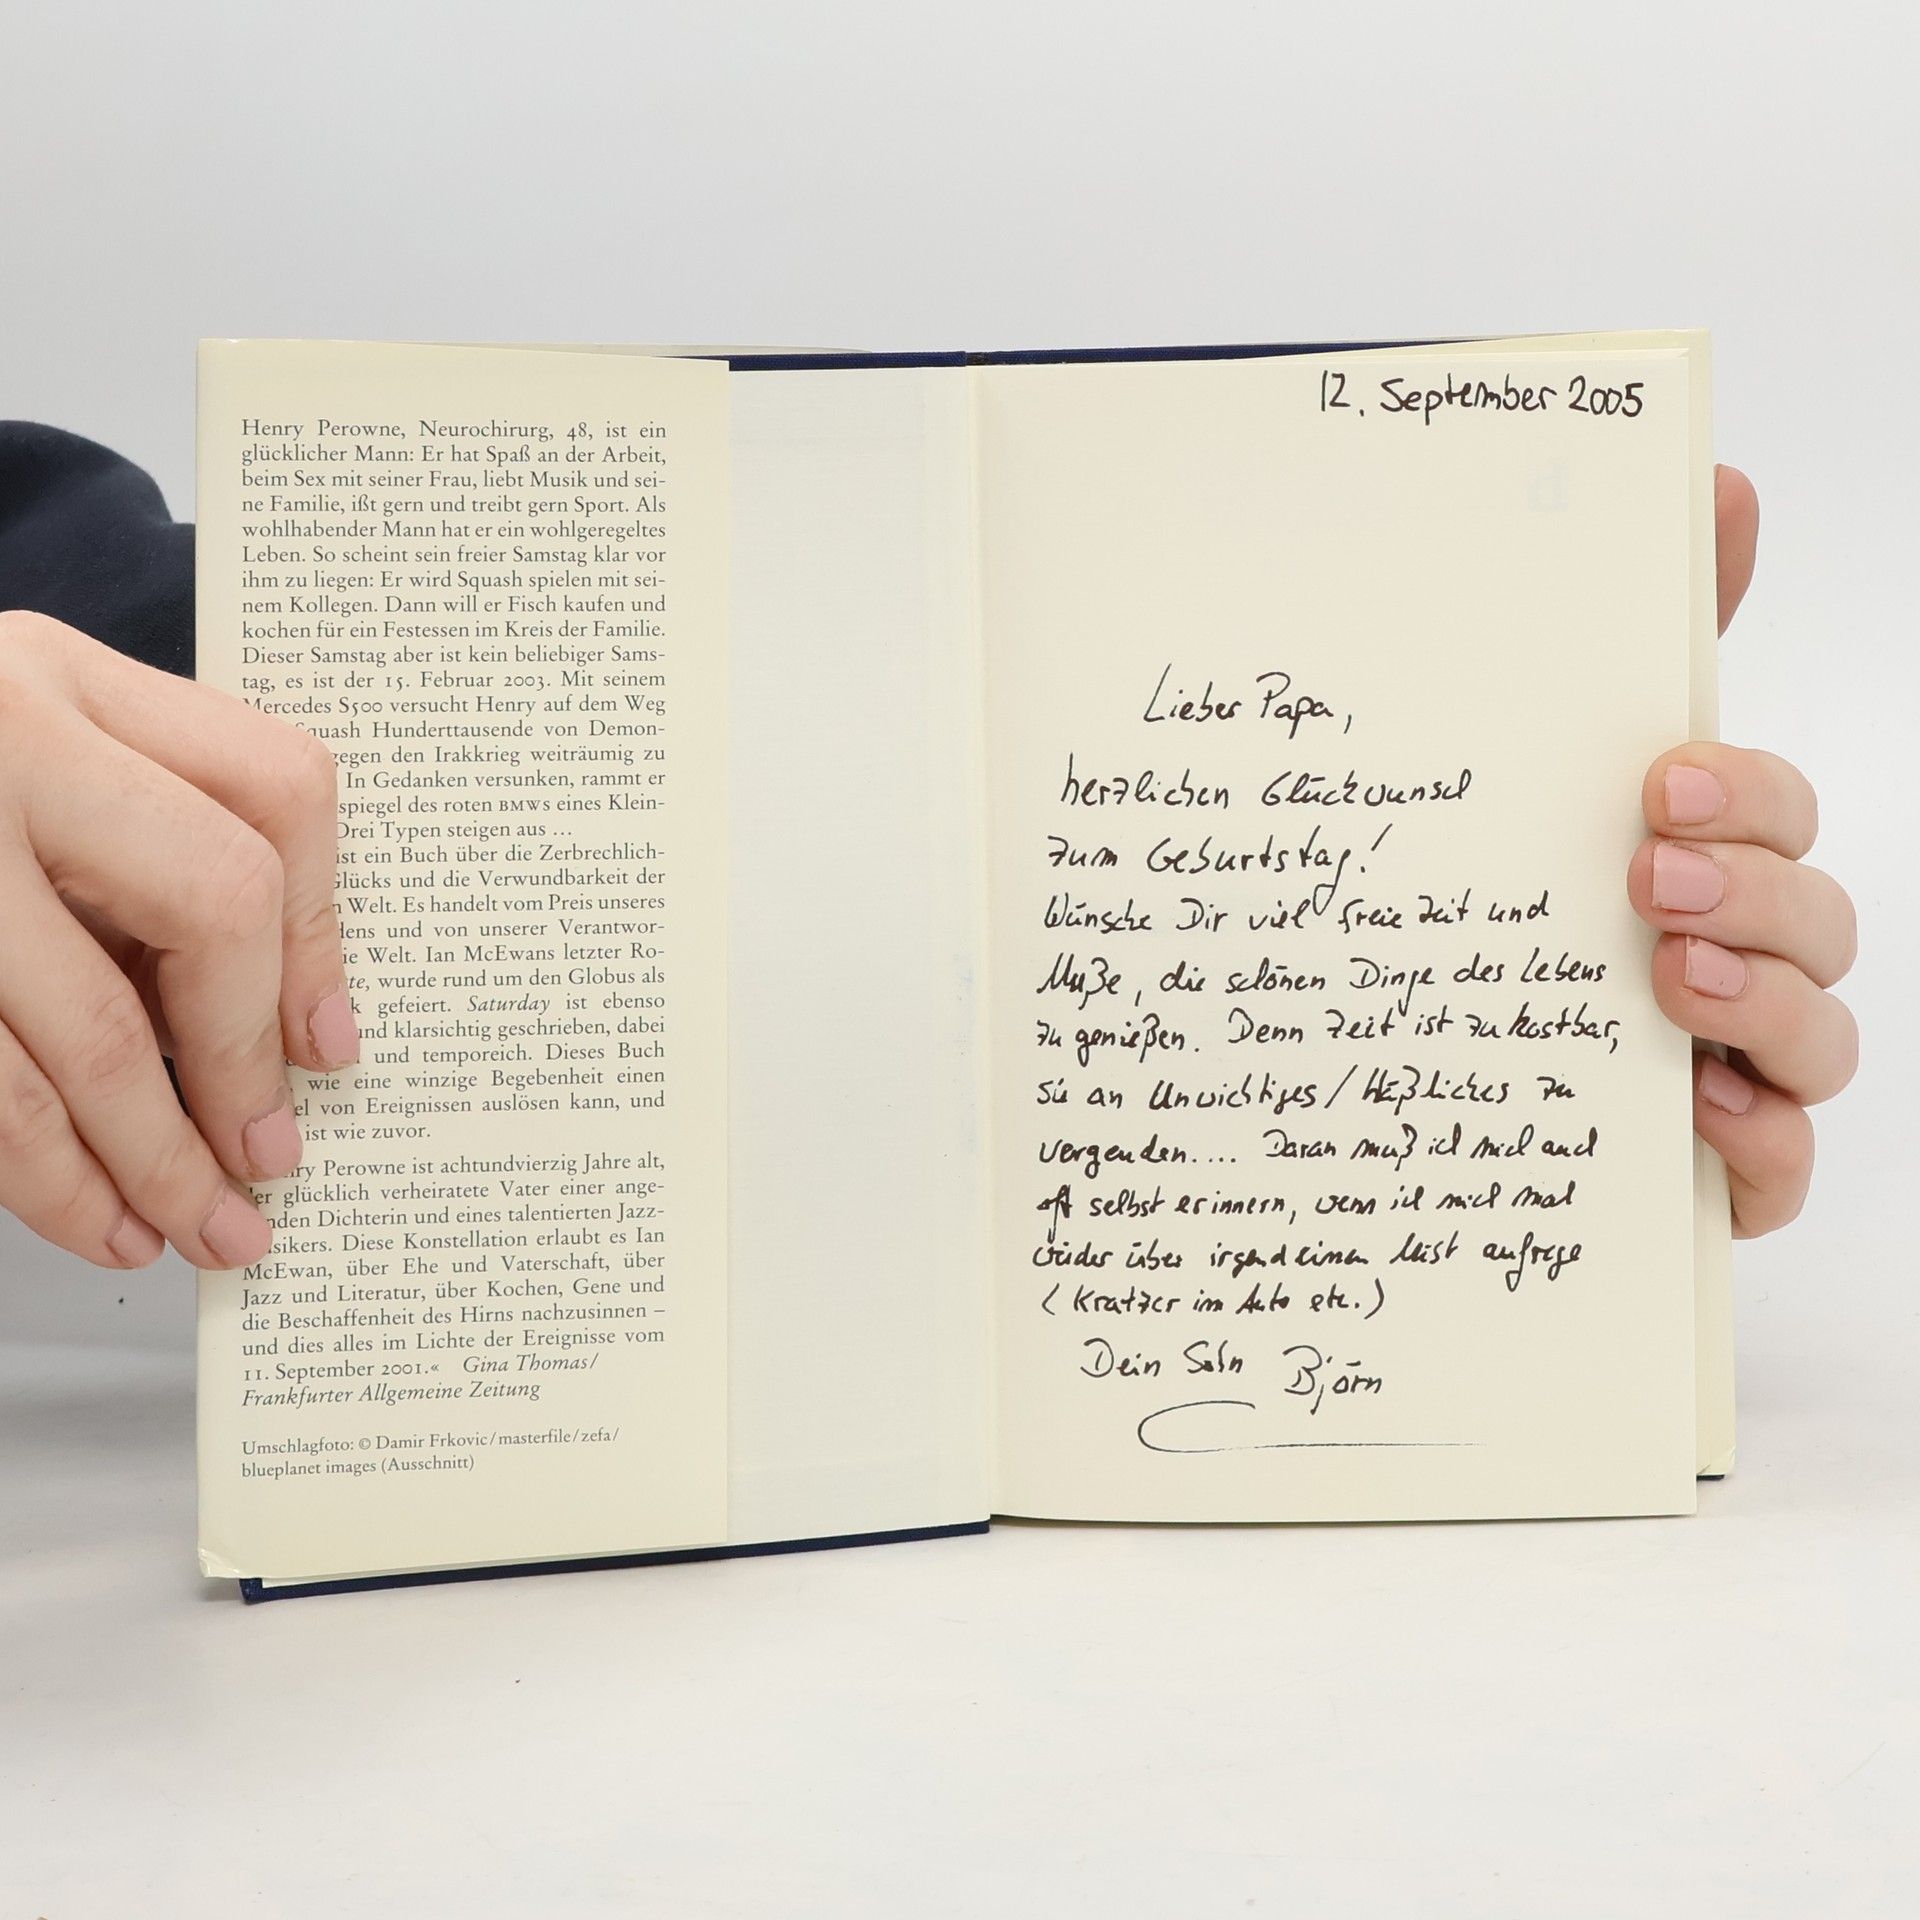 Henry Perowne, Neurochirurg, 48, ist ein
glücklicher Mann: Er hat Spaß an der Arbeit,
beim Sex mit seiner Frau, liebt Musik und sei-
ne Familie, ißt gern und treibt gern Sport. Als
wohlhabender Mann hat er ein wohlgeregeltes
Leben. So scheint sein freier Samstag klar vor
ihm zu liegen: Er wird Squash spielen mit sei-
nem Kollegen. Dann will er Fisch kaufen und
kochen für ein Festessen im Kreis der Familie.
Dieser Samstag aber ist kein beliebiger Sams-
tag, es ist der 15. Februar 2003. Mit seinem
Mercedes S500 versucht Henry auf dem Weg
Squash Hunderttausende von Demon-
gegen den Irakkrieg weiträumig zu
In Gedanken versunken, rammt er
spiegel des roten BMWs eines Klein-
Drei Typen steigen aus ...
ist ein Buch über die Zerbrechlich-
Glücks und die Verwundbarkeit der
Welt. Es handelt vom Preis unseres
dens und von unserer Verantwor-
ie Welt. Ian McEwans letzter Ro-
te, wurde rund um den Globus als
k gefeiert. Saturday ist ebenso
und klarsichtig geschrieben, dabei
und temporeich. Dieses Buch
wie eine winzige Begebenheit einen
el von Ereignissen auslösen kann, und
ist wie zuvor.
ry Perowne ist achtundvierzig Jahre alt,
der glücklich verheiratete Vater einer ange-
nden Dichterin und eines talentierten Jazz-
sikers. Diese Konstellation erlaubt es Ian
McEwan, über Ehe und Vaterschaft, über
Jazz und Literatur, über Kochen, Gene und
die Beschaffenheit des Hirns nachzusinnen –
und dies alles im Lichte der Ereignisse vom
11. September 2001.« Gina Thomas/
Frankfurter Allgemeine Zeitung
Umschlagfoto: © Damir Frkovic/masterfile/zefa/
blueplanet images (Ausschnitt)
12. September 2005
Lieber Papa,
herzlichen Glückwunsch
zum Geburtstag!
Wünsche Dir viel freie Zeit und
Muße, die schönen Dinge des Lebens
zu genießen. Denn Zeit ist zu kostbar,
sie an Unwichtiges / Häßliches zu
vergeuden.... Daran muß ich mich auch
oft selbst erinnern, wenn ich mich mal
wieder über irgendeinen Mist aufrege
(Kratzer im Auto etc.)
Dein Sohn Björn